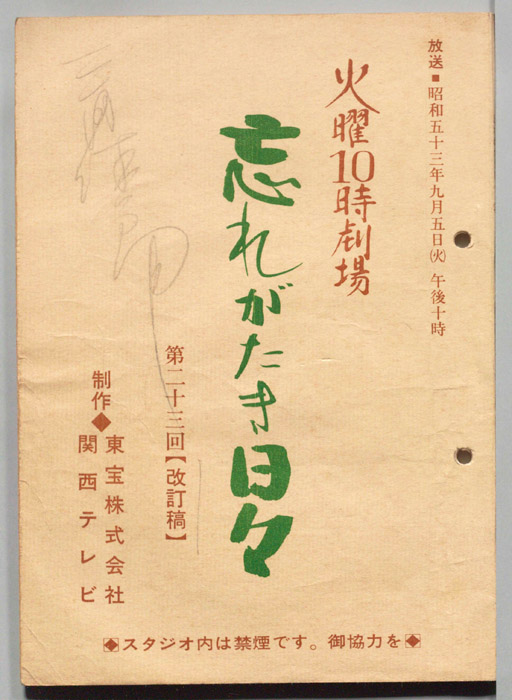 放送■昭和五十三年九月五日㈫ 午後十時
火曜10時劇場
忘れがたき日々
第二十三回【改訂稿】
制作◆東宝株式会社
関西テレビ
◆スタジオ内は禁煙です。御協力を◆